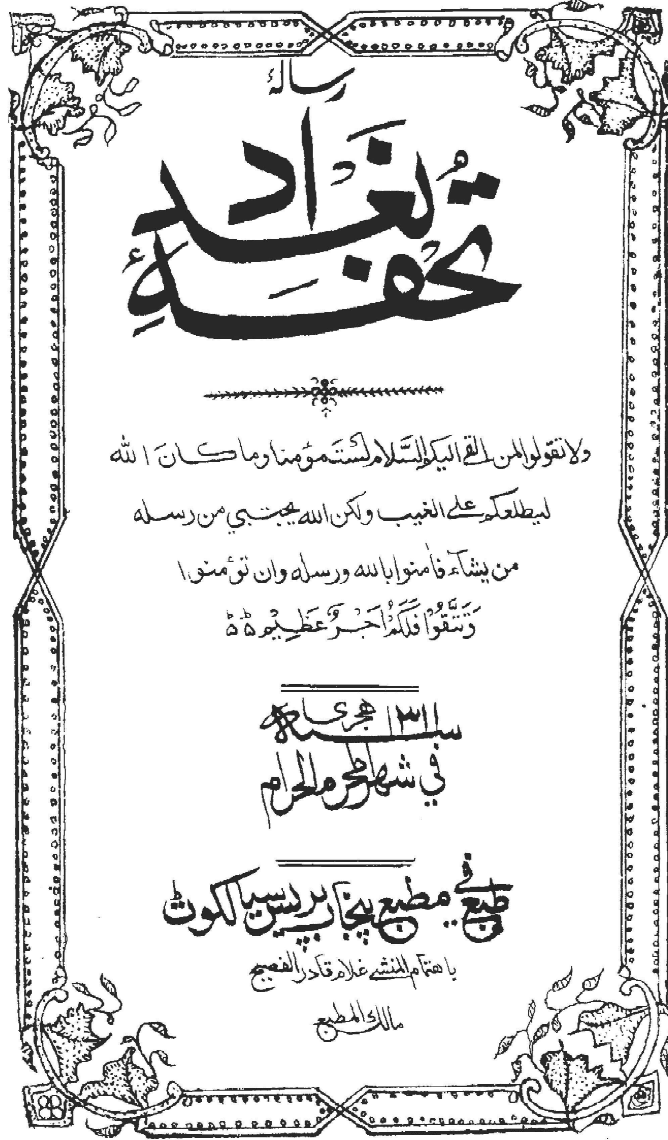 رسالہ
تحفۂ بغداد
ولا تقولوا لمن القى اليكم السَّلام لَسْتَ مؤمنا وما كان الله
ليطلعكم على الغيب ولكن الله يجتبي من رسله
من يشآء فامنوا بالله ورسله وان تؤمنوا
وَتَتَّقُوْا فَلَكُمْ اَجْرٌ عَظِيْم
سنہ ١٣١١ ھجری
في شهر المحرم الحرام
طبع في مطبع پنجاب پریس سیالکوٹ
باهتمام المنشي غلام قادر الفصيح
مالك المطبع